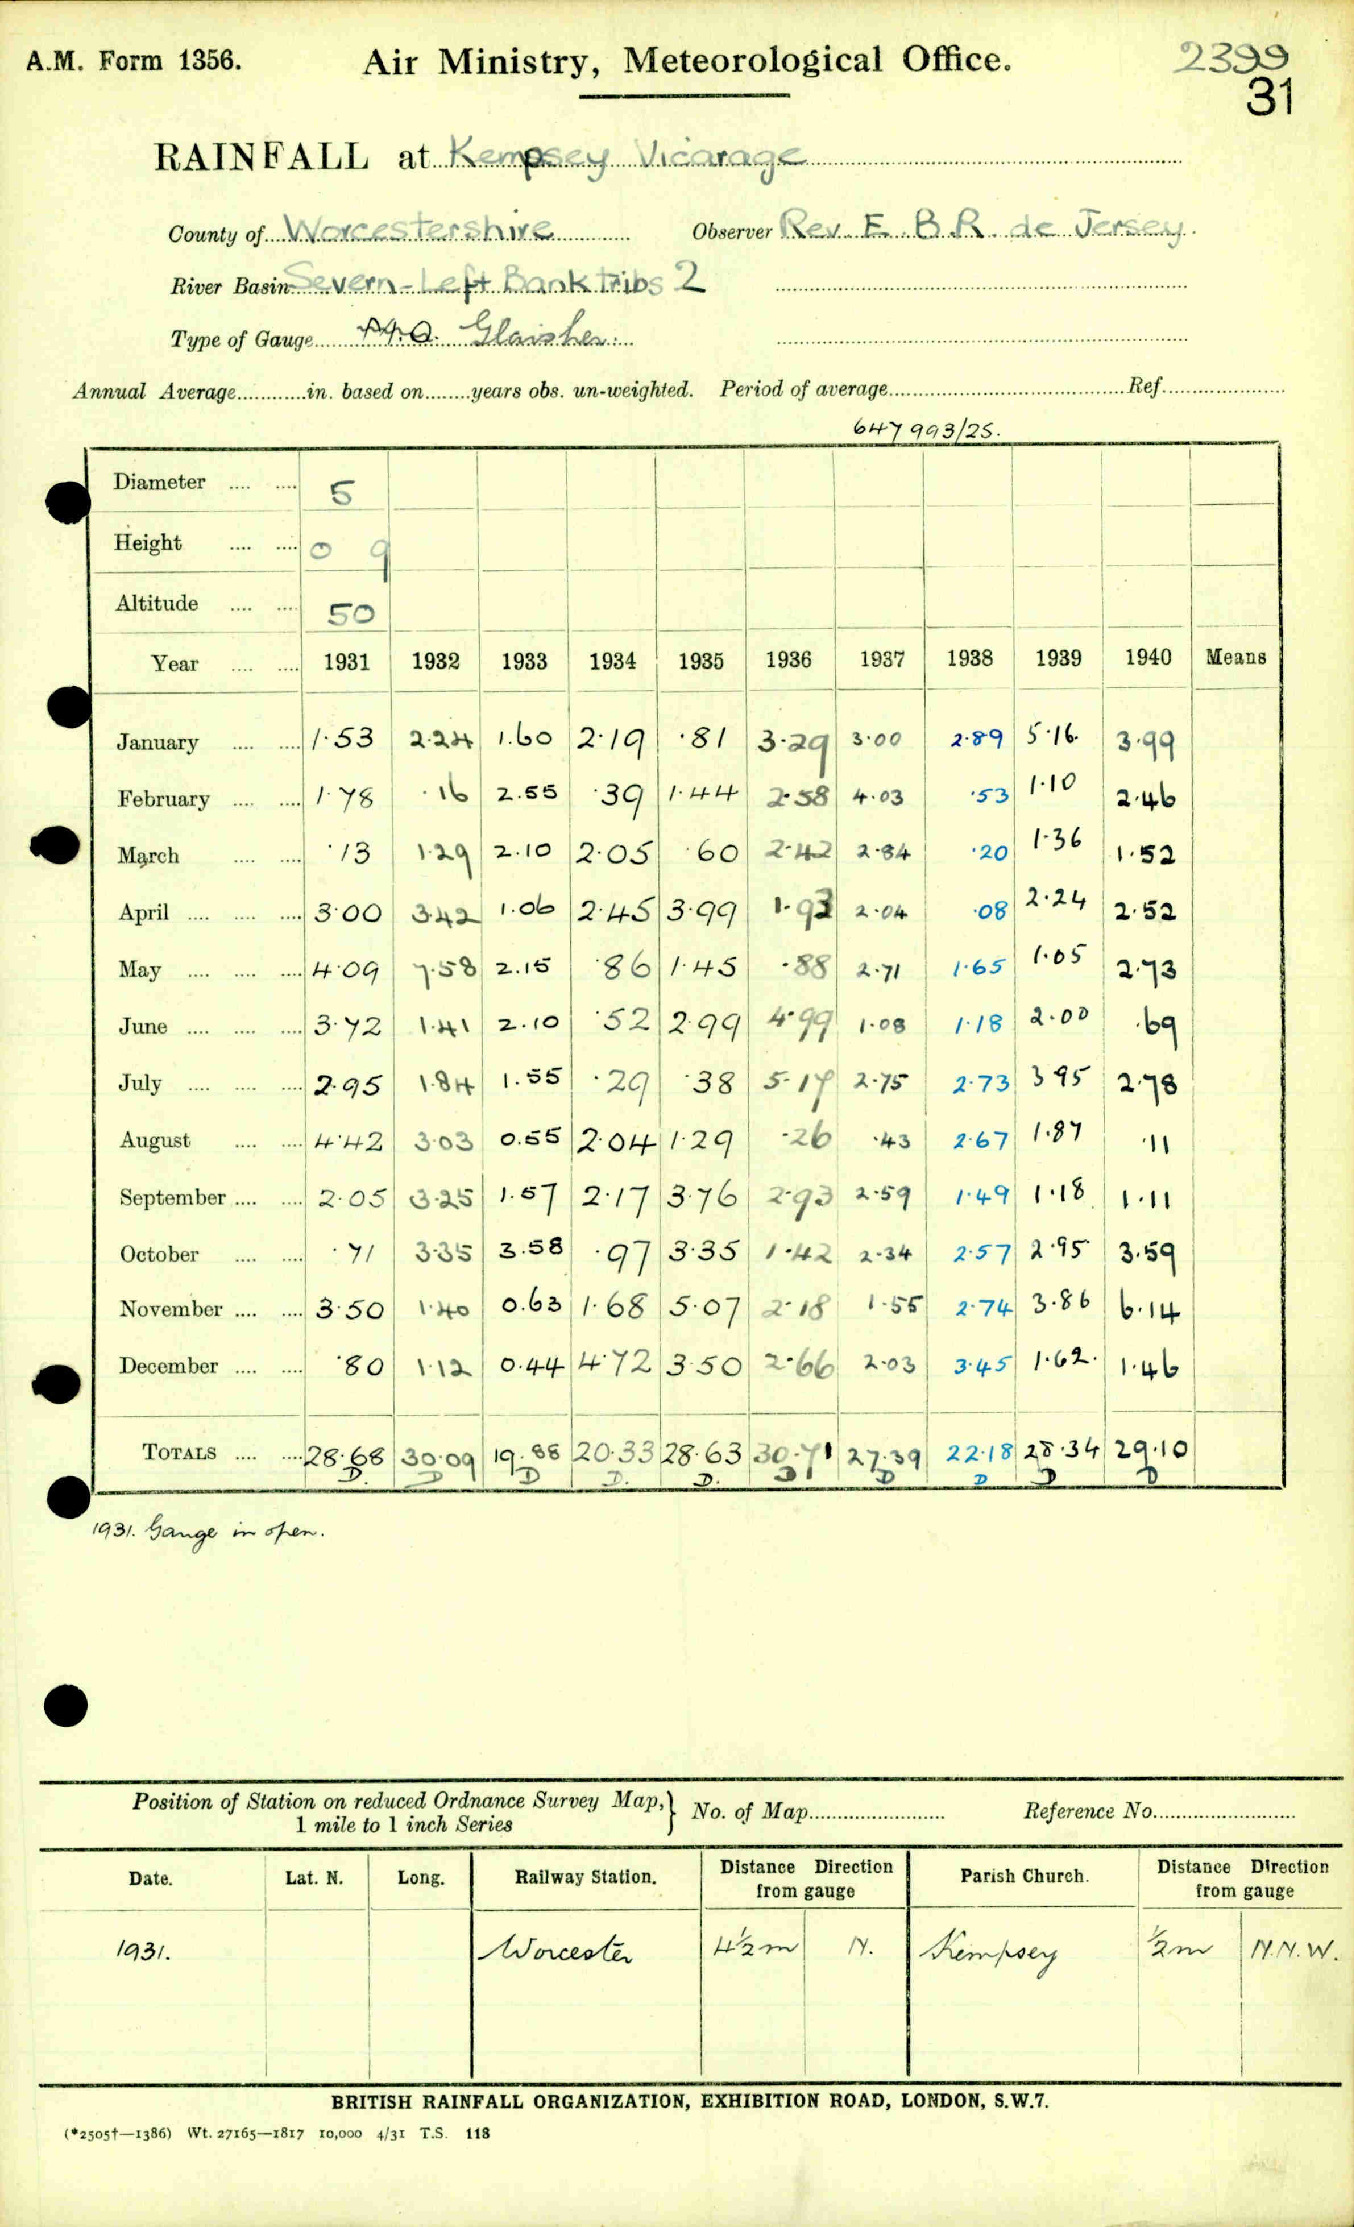 A.M. Form 1356. Air Ministry, Meteorological Office. 2399
31
RAINFALL at Kempsey Vicarage
County of Worcestershire Observer Rev. E. B. R. de Jersey.
River Basin Severn-Left Bank tribs 2
Type of Gauge Glaisher
Annual Average in. based on years obs. un-weighted. Period of average Ref.
647 993/25.
Diameter 5
Height 0 9
Altitude 50
Year 1931 1932 1933 1934 1935 1936 1937 1938 1939 1940 Means
January 1.53 2.24 1.60 2.19 .81 3.29 3.00 2.89 5.16 3.99
February 1.78 .16 2.55 .39 1.44 2.58 4.03 .53 1.10 2.46
March .13 1.29 2.10 2.05 .60 2.42 2.84 .20 1.36 1.52
April 3.00 3.42 1.06 2.45 3.99 1.93 2.04 .08 2.24 2.52
May 4.09 7.58 2.15 .86 1.45 .88 2.71 1.65 1.05 2.73
June 3.72 1.41 2.10 .52 2.99 4.99 1.08 1.18 2.00 .69
July 2.95 1.84 1.55 .29 .38 5.17 2.75 2.73 3.95 2.78
August 4.42 3.03 0.55 2.04 1.29 .26 .43 2.67 1.87 .11
September 2.05 3.25 1.57 2.17 3.76 2.93 2.59 1.49 1.18 1.11
October .71 3.35 3.58 .97 3.35 1.42 2.34 2.57 2.95 3.59
November 3.50 1.40 0.63 1.68 5.07 2.18 1.55 2.74 3.86 6.14
December .80 1.12 0.44 4.72 3.50 2.66 2.03 3.45 1.62 1.46
TOTALS 28.68 30.09 19.88 20.33 28.63 30.71 27.39 22.18 28.34 29.10
D. D D D. D. D D D D D
1931. Gauge in open.
Position of Station on reduced Ordnance Survey Map, } No. of Map Reference No.
1 mile to 1 inch Series
Date. Lat. N. Long. Railway Station. Distance Direction from gauge Parish Church. Distance Direction from gauge
1931. Worcester 4½ m N. Kempsey ½ m N.N.W.
BRITISH RAINFALL ORGANIZATION, EXHIBITION ROAD, LONDON, S.W.7.
(*2505†—1386) Wt. 27165—1817 10,000 4/31 T.S. 118